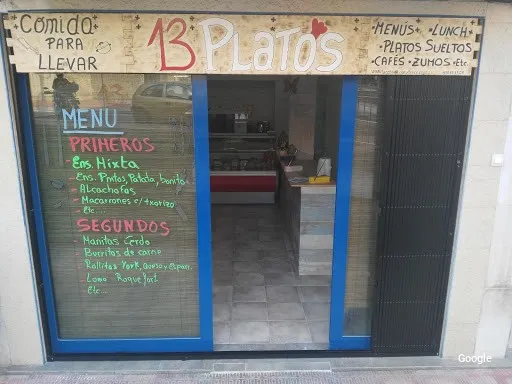 Comida
PARA
LLEVAR
13 PLATOS
•MENÚS •LUNCH
•PLATOS SUELTOS
•CAFÉS •ZUMOS •Etc
MENU
PRIMEROS
- Ens. Mixta
- Ens. Pmtos, Patata, bonito
- Alcachofas
- Macarrones c/txorizo
- Etc...
SEGUNDOS
Manitas Cerdo
Burritos de carne
Rollitos York, Queso y Esparr.
Lomo Roquefort
Etc...
Google